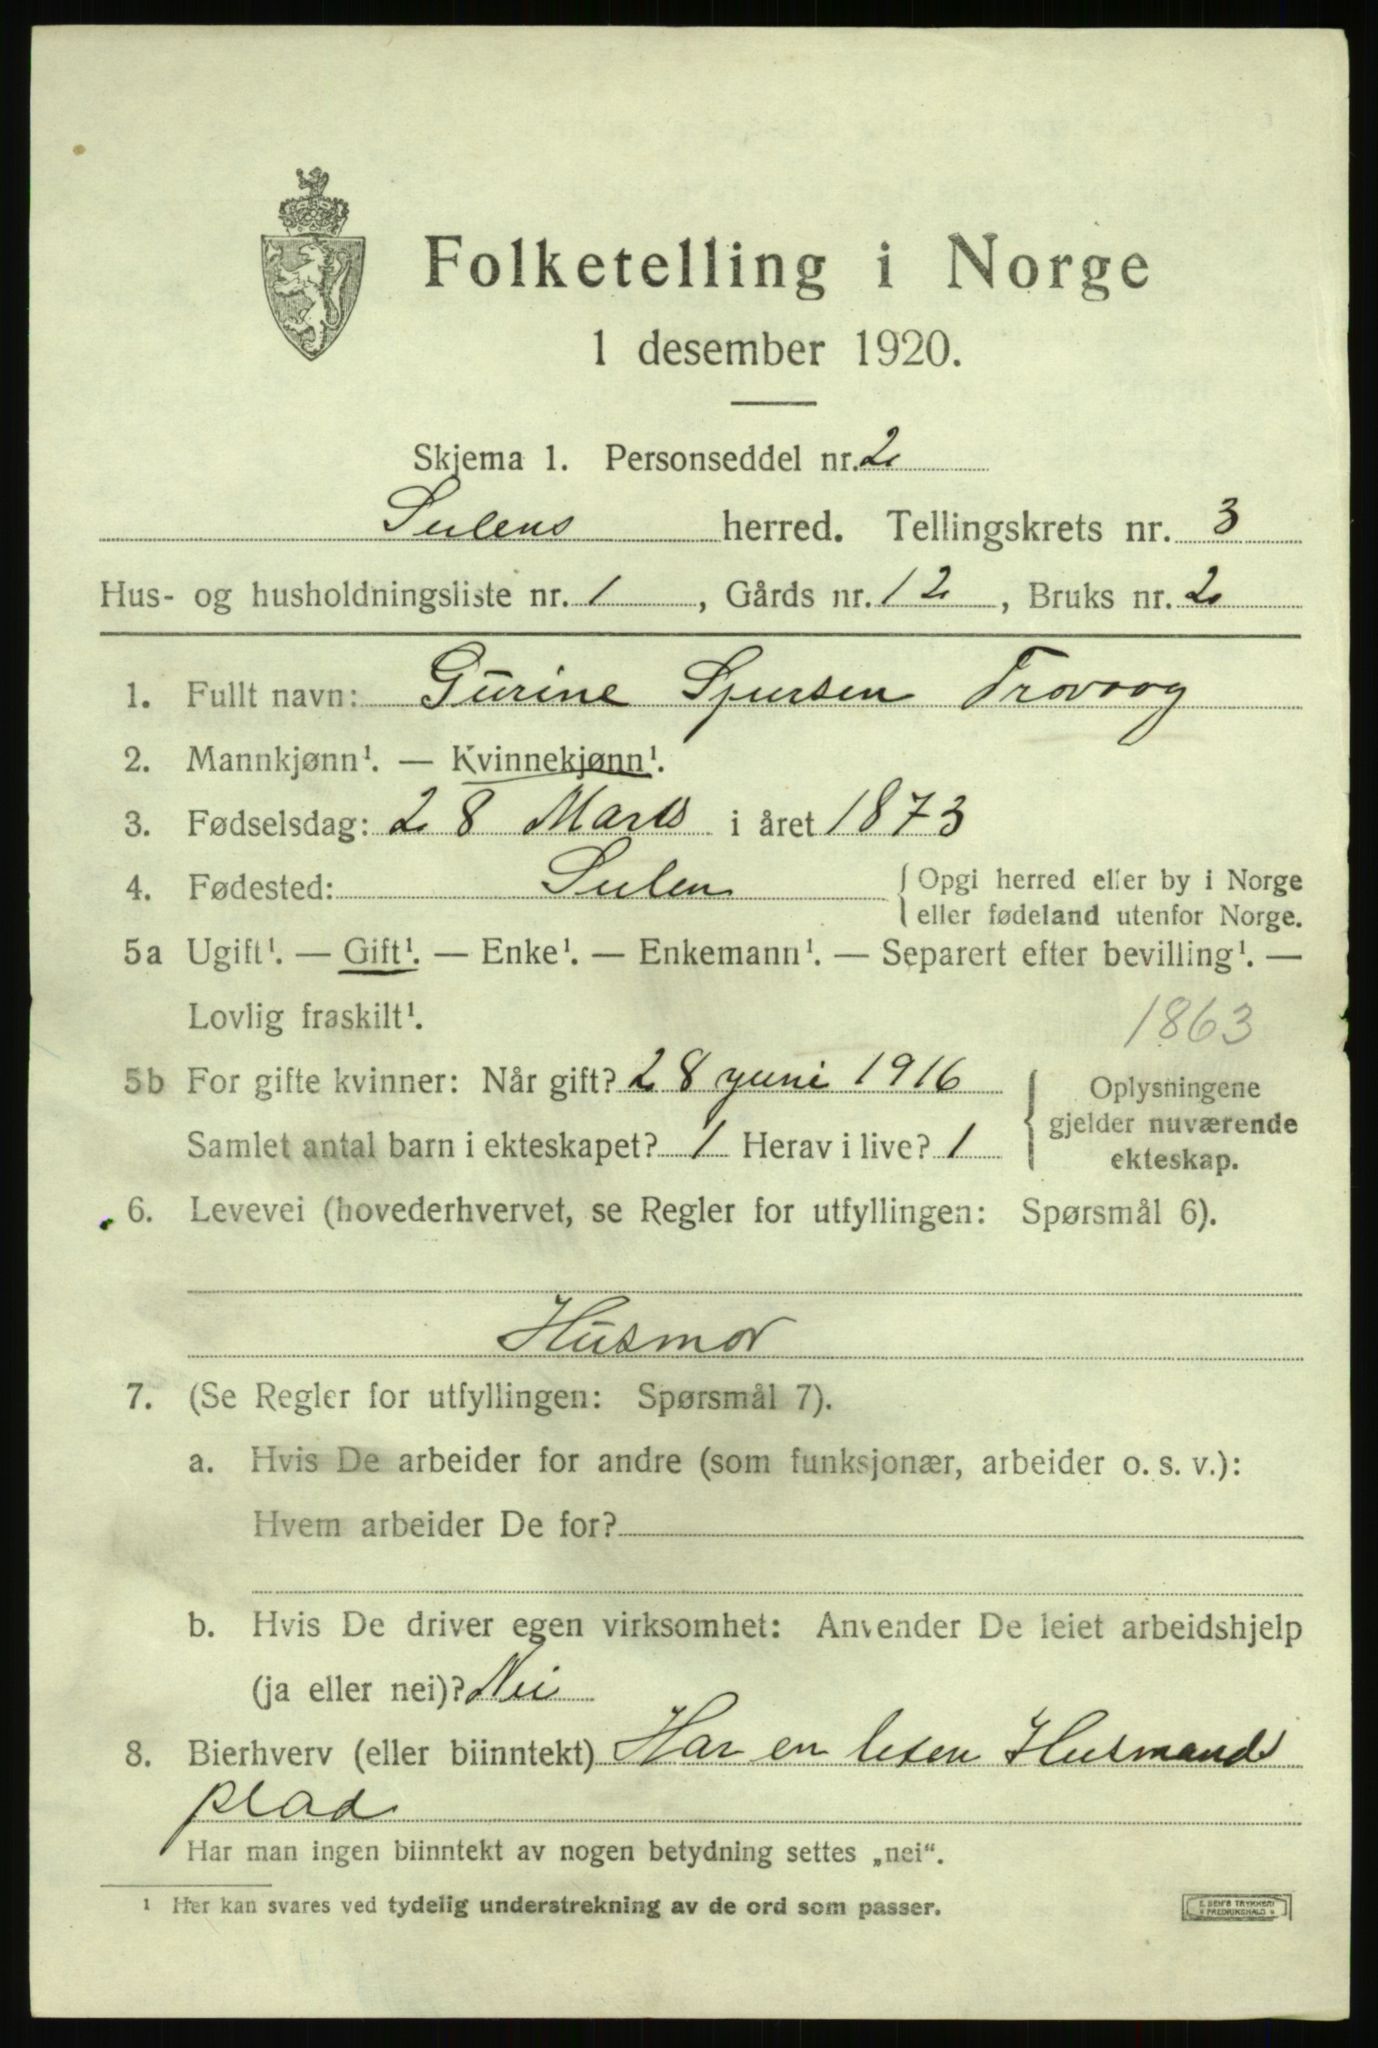 Folketelling i Norge
1 desember 1920.
Skjema 1. Personseddel nr. 2
Sulens herred. Tellingskrets nr. 3
Hus- og husholdningsliste nr. 1, Gårds nr. 12, Bruks nr. 2
1. Fullt navn: Gurine Sjursen Trovaag
2. Mannkjønn¹. — Kvinnekjønn¹.
3. Fødselsdag: 28 Marts i året 1873
4. Fødested: Sulen { Opgi herred eller by i Norge
eller fødeland utenfor Norge.
5a Ugift¹. — Gift¹. — Enke¹. — Enkemann¹. — Separert efter bevilling¹. —
Lovlig fraskilt¹.
1863
5b For gifte kvinner: Når gift? 28 yuni 1916
Samlet antal barn i ekteskapet? 1 Herav i live? 1
{ Oplysningene
gjelder nuværende
ekteskap.
6. Levevei (hovederhvervet, se Regler for utfyllingen: Spørsmål 6).
Husmor
7. (Se Regler for utfyllingen: Spørsmål 7).
a. Hvis De arbeider for andre (som funksjonær, arbeider o. s. v.):
Hvem arbeider De for?
b. Hvis De driver egen virksomhet: Anvender De leiet arbeidshjelp
(ja eller nei)? Nei
8. Bierhverv (eller biinntekt) Har en liten Husmands
plads
Har man ingen biinntekt av nogen betydning settes „nei“.
¹ Her kan svares ved tydelig understrekning av de ord som passer.
TRYKKERI
FREDRIKSHALD